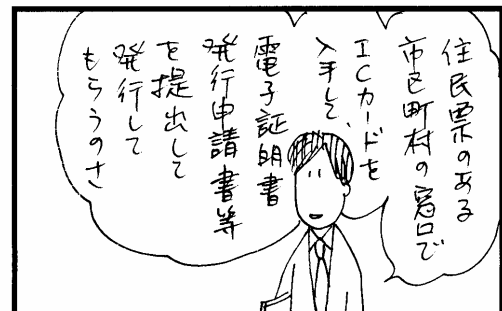 住民票のある
市区町村の窓口で
ICカードを
入手して、
電子証明書
発行申請書等
を提出して
発行して
もらうのさ